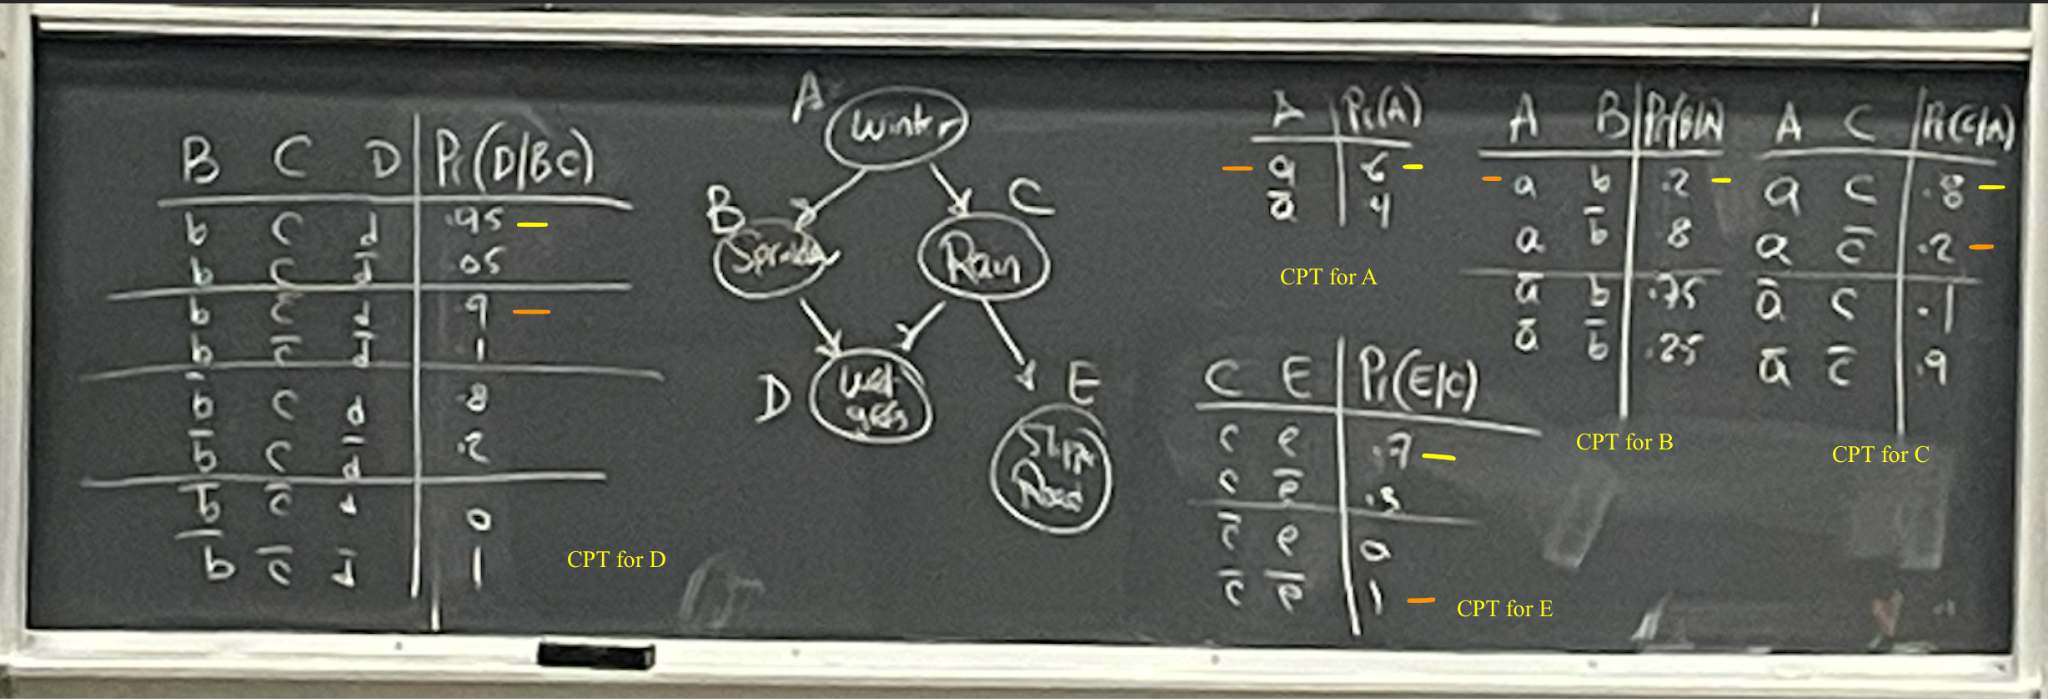 B C D Pr(D/BC)
b c d .95
b c d̄ .05
b c̄ d .9
b c̄ d̄ .1
b̄ c d .8
b̄ c d̄ .2
b̄ c̄ d 0
b̄ c̄ d̄ 1
CPT for D
A
Winter
B
C
Rain
D
wet
E
Road
A Pr(A)
a .6
ā .4
CPT for A
A B Pr(B/A)
a b .2
a b̄ .8
ā b .75
ā b̄ .25
CPT for B
A C Pr(C/A)
a c .8
a c̄ .2
ā c .1
ā c̄ .9
CPT for C
C E Pr(E/C)
c e .7
c ē .3
c̄ e 0
c̄ ē 1
CPT for E